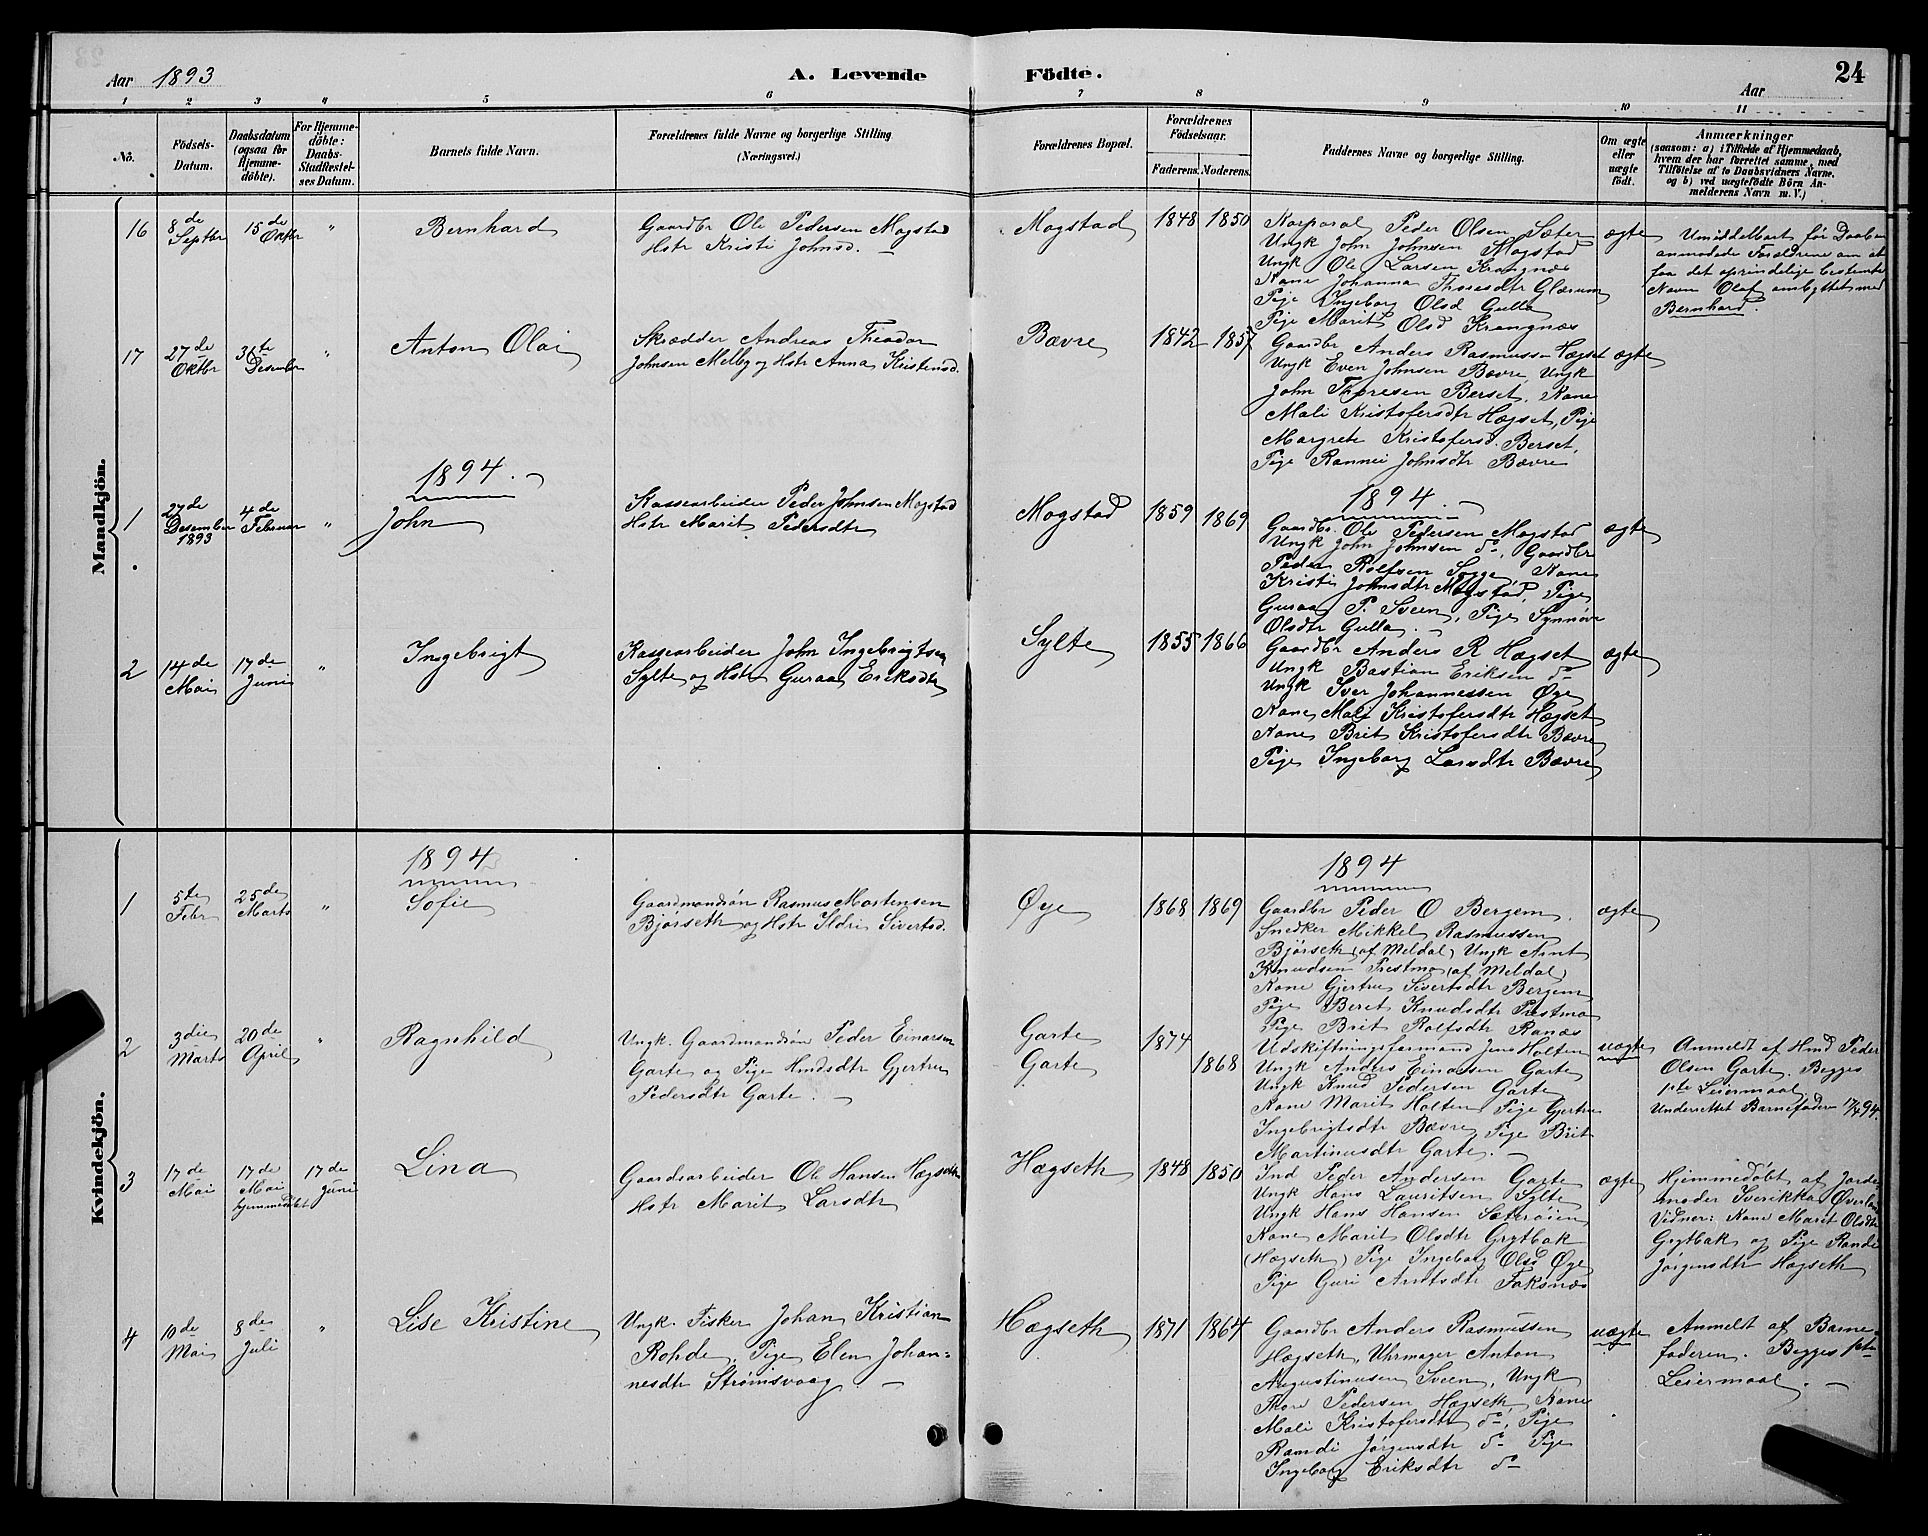 Aar 1893
A. Levende Födte.
24
Aar
1 2 3 4 5 6 7 8 9 10 11
No.
Födsels-
Datum.
Daabsdatum
(ogsaa for
Hjemme-
döbte).
For Hjemme-
döbte:
Daabs-
Stadfæstel-
ses Datum.
Barnets fulde Navn.
Forældrenes fulde Navne og borgerlige Stilling
(Næringsvei.)
Forældrenes Bopæl.
Forældrenes
Födselsaar.
Faderens. Moderens.
Faddernes Navne og borgerlige Stilling.
Om ægte
eller
uægte
födt.
Anmærkninger
(saasom: a) i Tilfælde af Hjemmedaab,
hvem der har forrettet samme, med
Tilföielse af to Daabsvidners Navne,
og b) ved uægtefödte Börn An-
melderens Navn m. V.)
Mandkjön.
16
8de
Septbr
15de
Oktbr
"
Bernhard
Gaardbr Ole Pedersen Mogstad
Hstr Kristi Johnsd. —
Mogstad
1848
1850
Korporal Peder Olsen Sæter
Ungk John Johnsen Mogstad
Ungk Ole Larsen Krangnæs
Kone Johanna Thoresdtr Glærum
Pige Ingeborg Olsd Gulla
Pige Marit Olsd Krangnæs
ægte
Umiddelbart før Daaben
anmodede Forældrene om at
faa det oprindelige bestemte
Navn Olaf ombyttet med
Bernhard.
17
27de
Oktbr
31te
Desember
"
Anton Olai
Skrædder Andreas Theodor
Johnsen Melby og Hstr Anna Kristensd.
Bævre
1842
1857
Gaardbr Anders Rasmussen Hægset
Ungk Even Johnsen Bævre, Ungk
John Thoresen Berset, Kone
Mali Kristofersdtr Hægset, Pige
Margrete Kristofersd. Berset,
Pige Rannei Johnsdtr Bævre
ægte
1894.
1894.
1
27de
Desember
1893
4de
Februar
"
John
Kassearbeider Peder Johnsen Mogstad
Hstr Marit Pedersdtr
Mogstad
1859
1869
Gaardbr. Ole Pedersen Mogstad
Ungk John Johnsen do, Gaardbr
Peder Rolfsen Sogge, Kone
Kristi Johnsdtr Mogstad, Pige
Guraa P. Sveen, Pige Synnøve
Olsdtr Gulla.
ægte
2
14de
Mai
17de
Juni
"
Ingebrigt
Kassearbeider John Ingebrigtsen
Sylte og Hstr Guraa Eriksdtr
Sylte
1855
1866
Gaardbr Anders R Hægset
Ungk Bastian Eriksen do
Ungk Iver Johannessen Øye
Kone Mali Kristofersdtr Hægset
Kone Brit Kristofersdtr Bævre
Pige Ingeborg Larsdtr Bævre
ægte
Kvindekjön.
1894
1894
1
5te
Febr
25de
Marts
"
Sofie
Gaardmandsøn Rasmus Mortensen
Bjørseth og Hstr Ildri Sivertsd.
Øye
1868
1869
Gaardbr Peder O Bergem,
Snedker Mikkel Rasmussen
Bjørseth (af Meldal) Ungk Arnt
Knudsen Prestmo (af Meldal)
Kone Gjertru Sivertsdtr Bergem
Pige Beret Knudsdtr Prestmo
Pige Brit Rolfsdtr Ranæs
ægte
2
3die
Marts
20de
April
"
Ragnhild
Ungk. Gaardmandsøn Peder Einarsen
Garte og Pige Hmdsdtr Gjertru
Pedersdtr Garte. —
Garte
Garte
1874
1868
Udskiftningsformand Jens Holten
Ungk Anders Einarsen Garte
Ungk Knud Pedersen Garte
Kone Marit Holten, Pige Gjertru
Ingebrigtsdtr Bævre, Pige Brit
Martinusdtr Garte. —
uægte
Anmeldt af Hmd Peder
Olsen Garte. Begges
1ste Leiermaal.
Underrettet Barnefaderen 17/4 94.
3
17de
Mai
17de
Mai
hjemmedøbt
17de
Juni
Lina
Gaardsarbeider Ole Hansen Hægseth
Hstr Marit Larsdtr
Hægseth
1848
1850
Ind Peder Andersen Garte
Ungk Hans Lauritsen Sylte
Ungk Hans Hansen Sæterøien
Kone Marit Olsdtr Grytbak
(Hægseth) Pige Ingeborg Olsd Øye
Pige Guri Arntsdtr Foksnæs
ægte
Hjemmedøbt af Jorde-
moder Sverikka Øverland
Vidner: Kone Marit Olsdtr
Grytbak og Pige Randi
Jørgensdtr Hægseth
4
10de
Mai
8de
Juli
"
Lise Kristine
Ungk. Fisker Johan Kristian
Rohde, Pige Elen Johan-
nesdtr Strømsvaag. —
Hægseth
1871
1864
Gaardbr Anders Rasmussen
Hægseth, Uhrmager Anton
Augustinusen Sveen, Ungk
Thore Pedersen Hægseth, Kone
Mali Kristofersdtr do, Pige
Randi Jørgensdtr do Pige
Ingeborg Eriksdtr do
uægte
Anmeldt af Barne-
faderen. Begges 1ste
Leiermaal. —